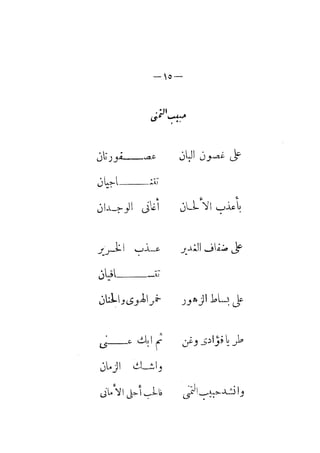 — ١٥ —
حبيب التمنى
على غصون البان عصفورتان
تتناجيان
بأعذب الألحان أغانى الوجدان
على ضفاف الغدير عذب الخرير
تتساقيان
على بساط الزهور خمر الهوى والحنان
طر يا فؤادى وغن ثم ابك عنى
واشك الزمان
وانشد حبيب التمنى فالحب أحلى الأمانى